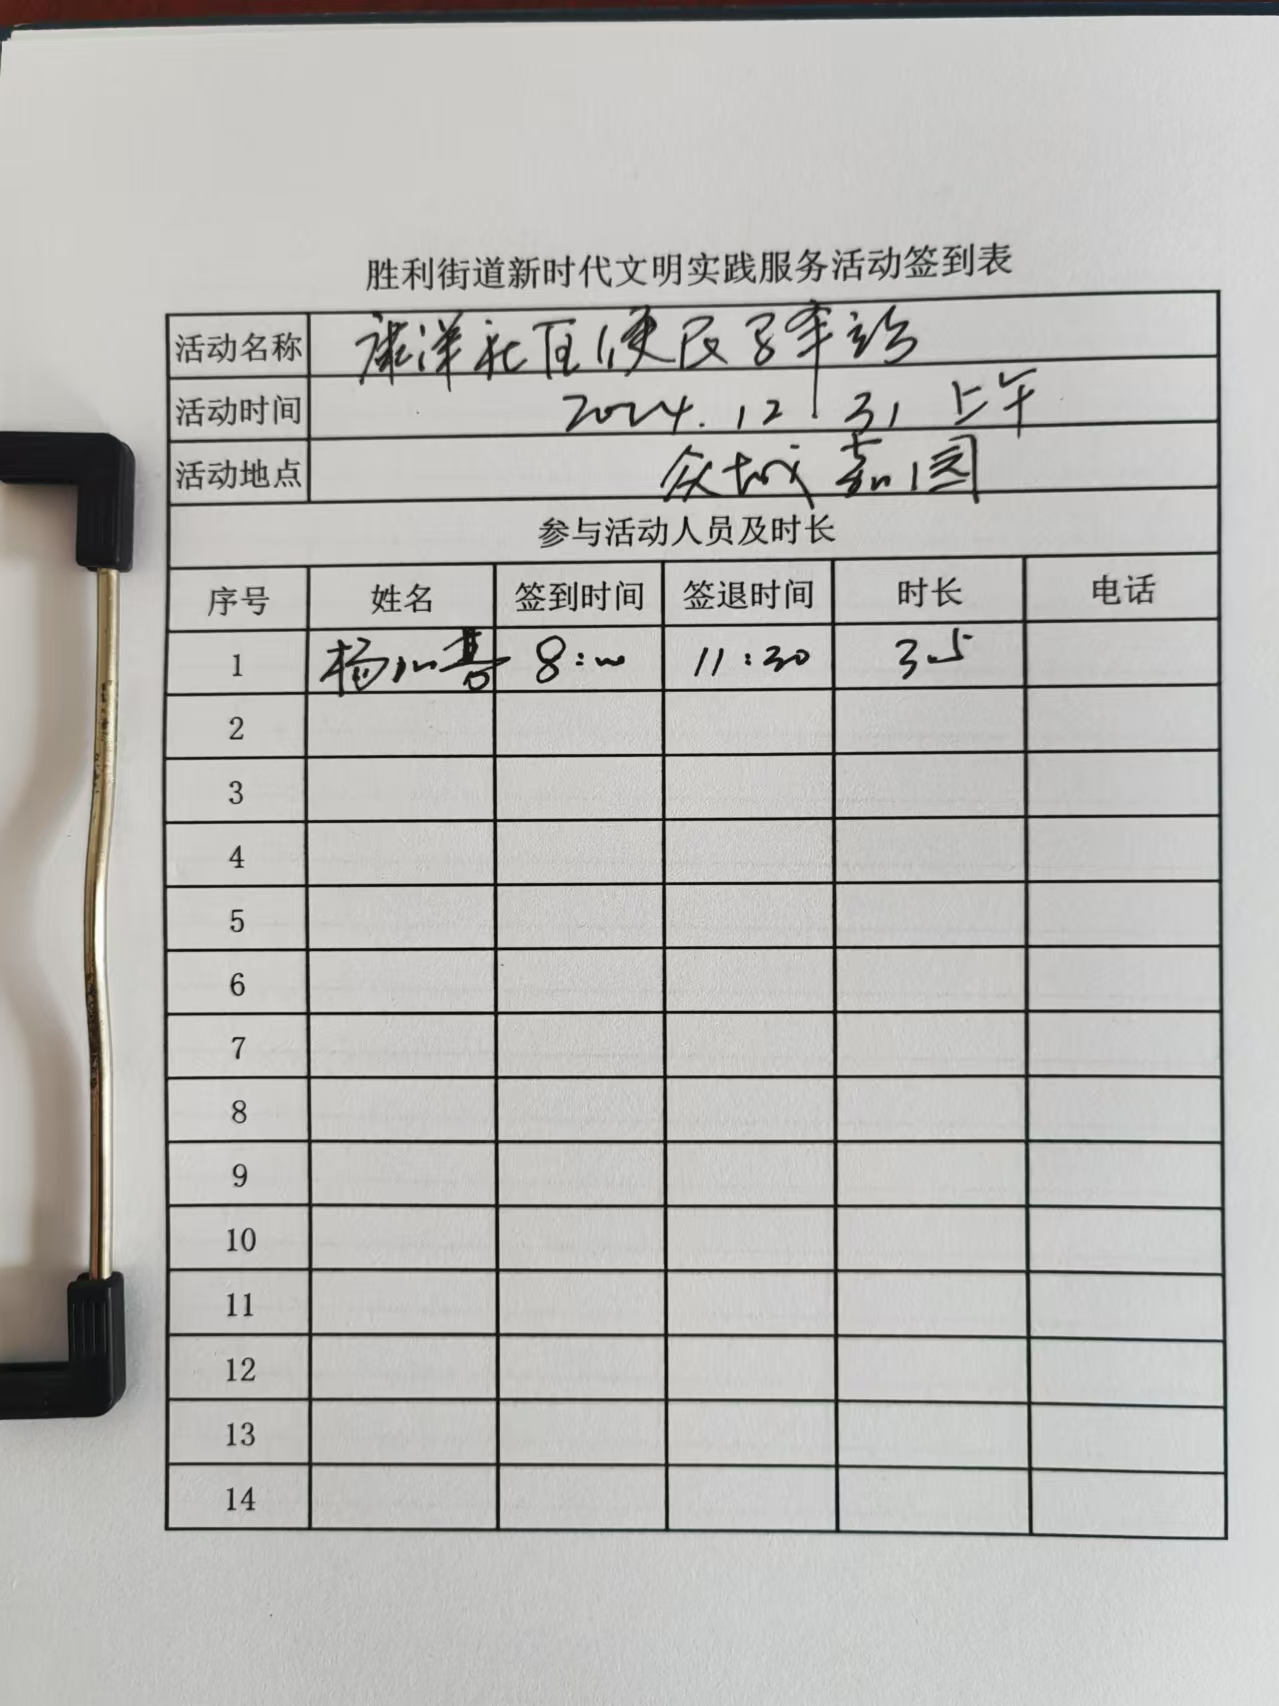 胜利街道新时代文明实践服务活动签到表
活动名称 康洋社区便民 车站
活动时间 2024.12.31 上午
活动地点 众城嘉园
参与活动人员及时长
序号 姓名 签到时间 签退时间 时长 电话
1 杨 8:00 11:30 3.5
2
3
4
5
6
7
8
9
10
11
12
13
14